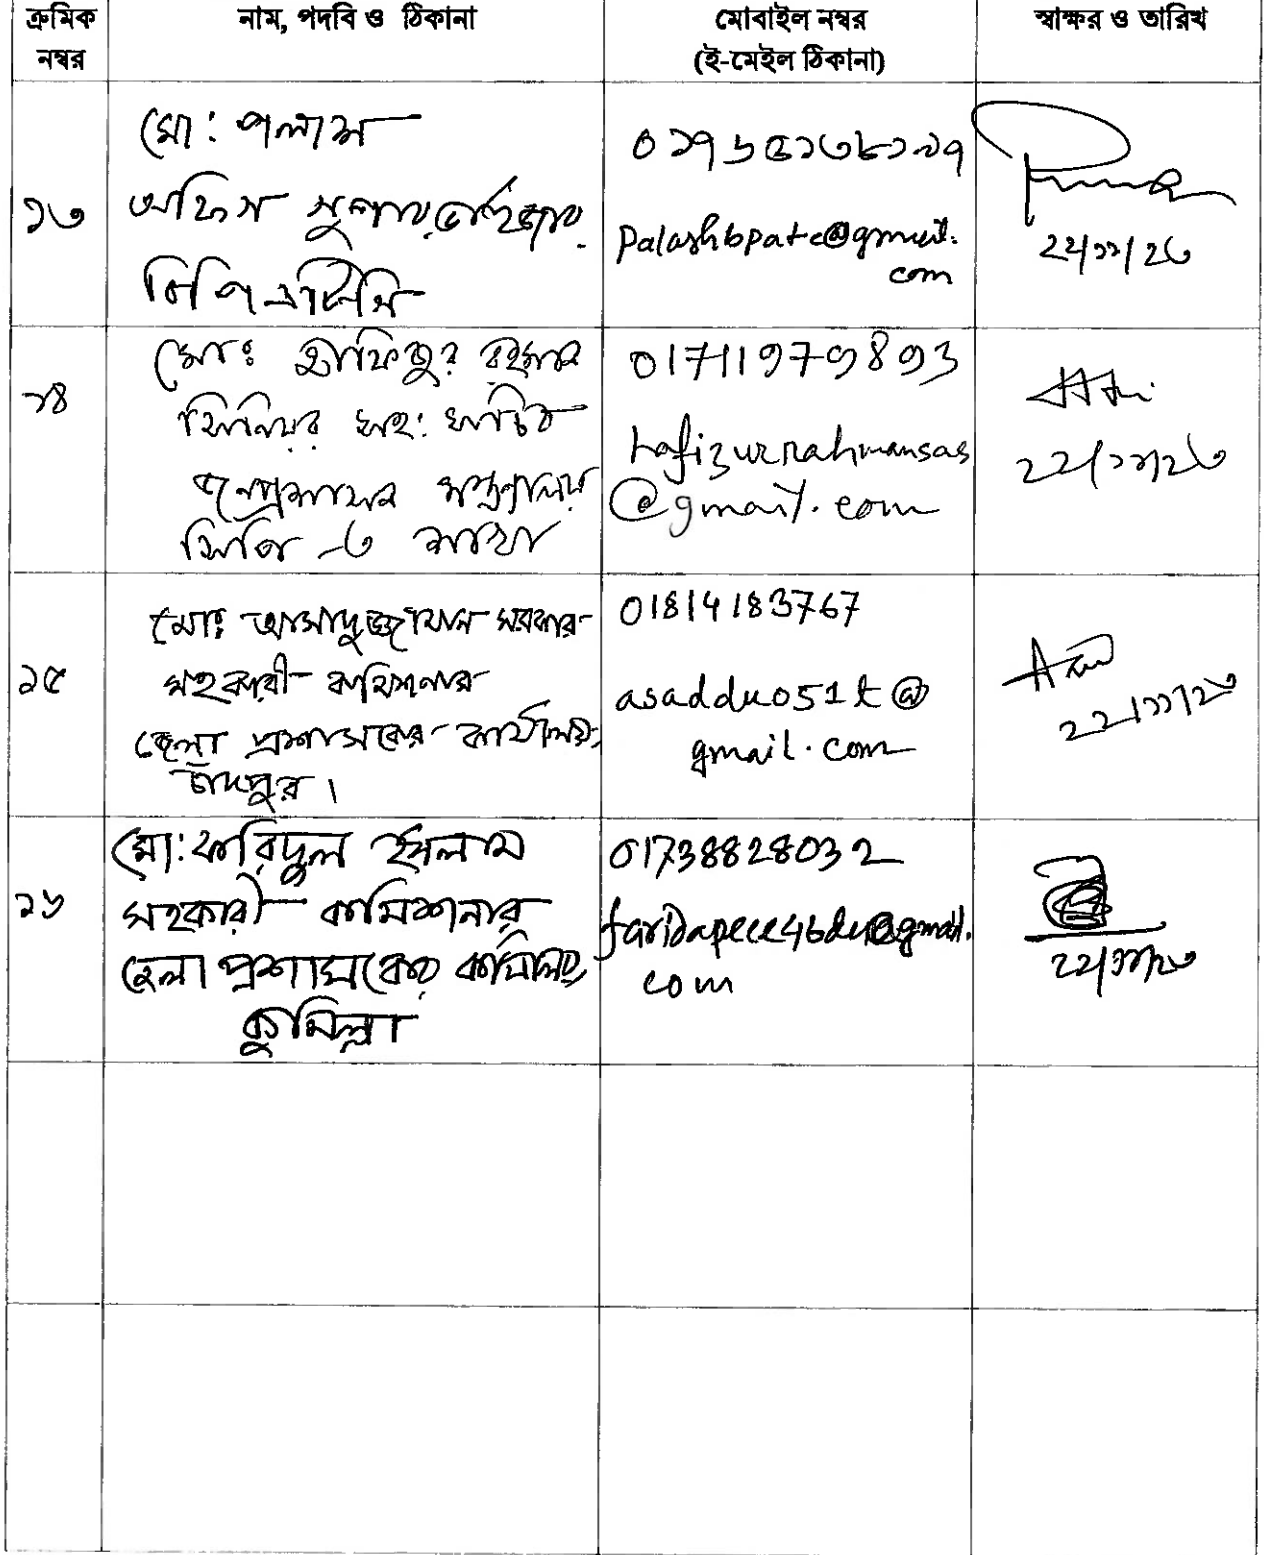 ক্রমিক নম্বর
নাম, পদবি ও ঠিকানা
মোবাইল নম্বর
(ই-মেইল ঠিকানা)
স্বাক্ষর ও তারিখ
১৩
মো: পলাশ
অফিস সুপারভাইজার
বিপিএটিসি
০১৭৬৫১৩৮১৯৭
palashbpatc@gmail.
com
২২/১১/২৩
১৪
মোঃ হাফিজুর রহমান
সিনিয়র সহ: সচিব
জনপ্রশাসন মন্ত্রণালয়
সিপি-৩ শাখা
01711979893
hafizurrahmansas
@gmail.com
২২/১১/২৩
১৫
মোঃ আসাদুজ্জামান সরকার
সহকারী কমিশনার
জেলা প্রশাসকের কার্যালয়,
চাঁদপুর।
01814183767
asadduo51t@
gmail.com
২২/১১/২৩
১৬
মো: ফরিদুল ইসলাম
সহকারী কমিশনার
জেলা প্রশাসকের কার্যালয়,
কুমিল্লা
01738828032
com
২২/১১/২৩